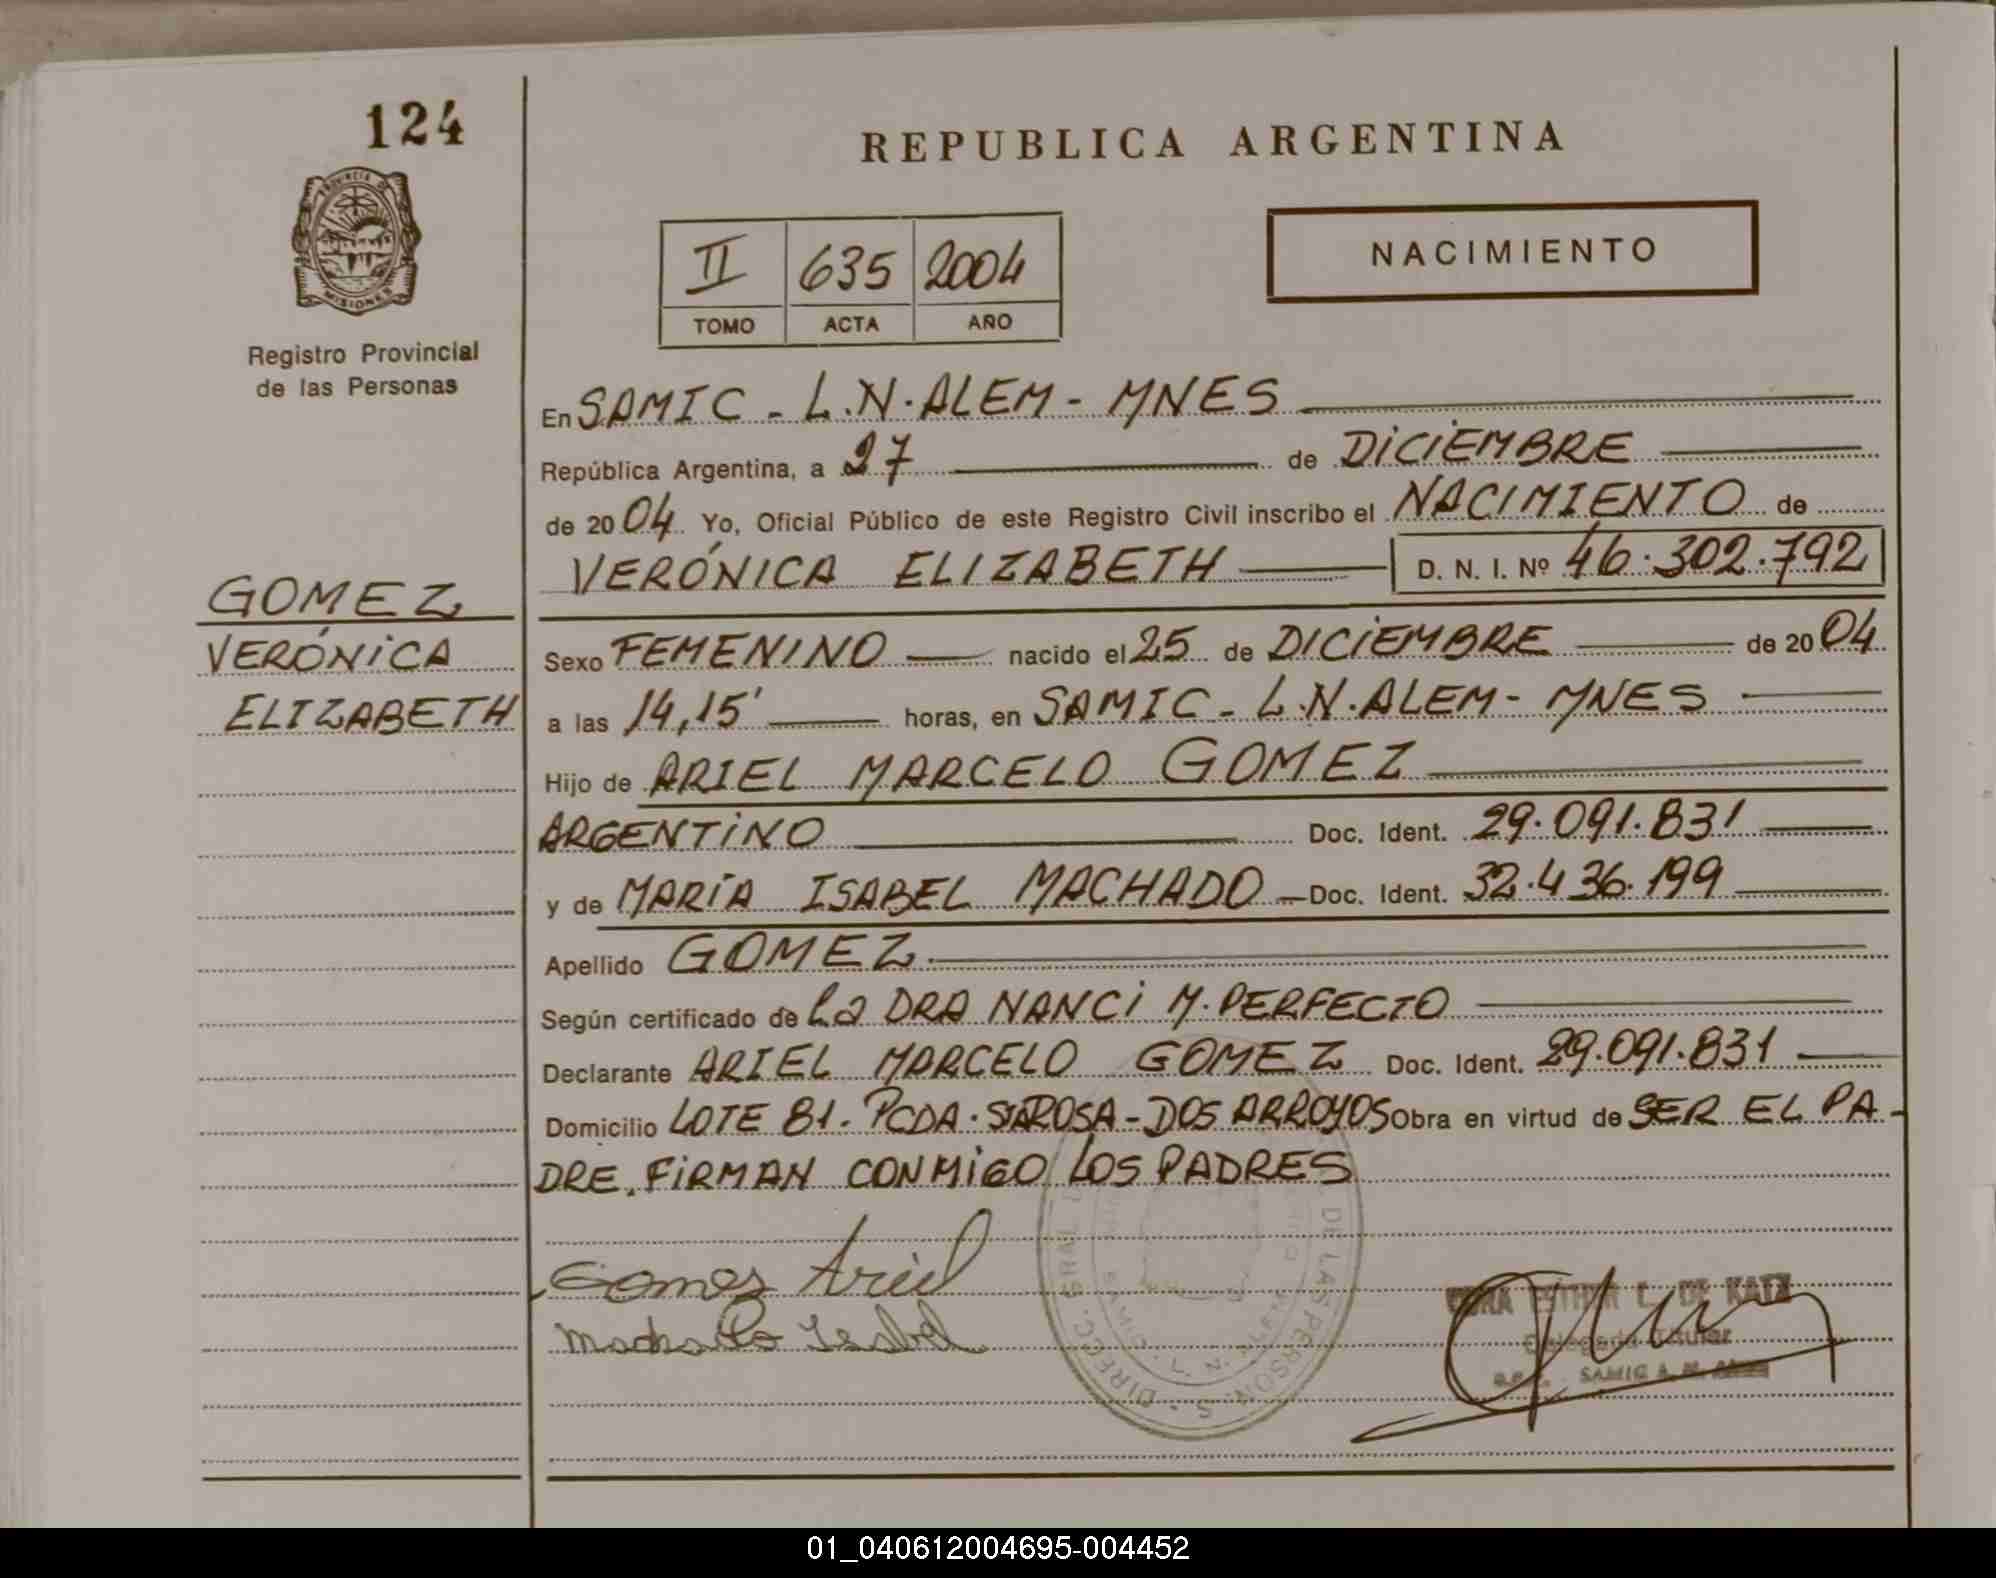 124
PROVINCIA DE
MISIONES
Registro Provincial
de las Personas
GOMEZ
VERÓNICA
ELIZABETH
REPUBLICA ARGENTINA
II 635 2004
TOMO ACTA AÑO
NACIMIENTO
En SAMIC - L.N. ALEM - MNES
República Argentina, a 27 de DICIEMBRE
de 2004 Yo, Oficial Público de este Registro Civil inscribo el NACIMIENTO de
VERÓNICA ELIZABETH D. N. I. Nº 46.302.792
Sexo FEMENINO nacido el 25 de DICIEMBRE de 2004
a las 14,15' horas, en SAMIC - L.N. ALEM - MNES
Hijo de ARIEL MARCELO GOMEZ
ARGENTINO Doc. Ident. 29.091.831
y de MARÍA ISABEL MACHADO Doc. Ident. 32.436.199
Apellido GOMEZ
Según certificado de La DRA NANCI M. PERFECTO
Declarante ARIEL MARCELO GOMEZ Doc. Ident. 29.091.831
Domicilio LOTE 81 - PCDA. STA ROSA - DOS ARROYOS Obra en virtud de SER EL PA-
DRE. FIRMAN CONMIGO LOS PADRES
Gomez Ariel
Machado Isabel
DIRECC. GRAL DE LAS PERSONAS
L. N. ALEM
ESTHER L. DE KATZ
Delegada Titular
SAMIC
01_040612004695-004452